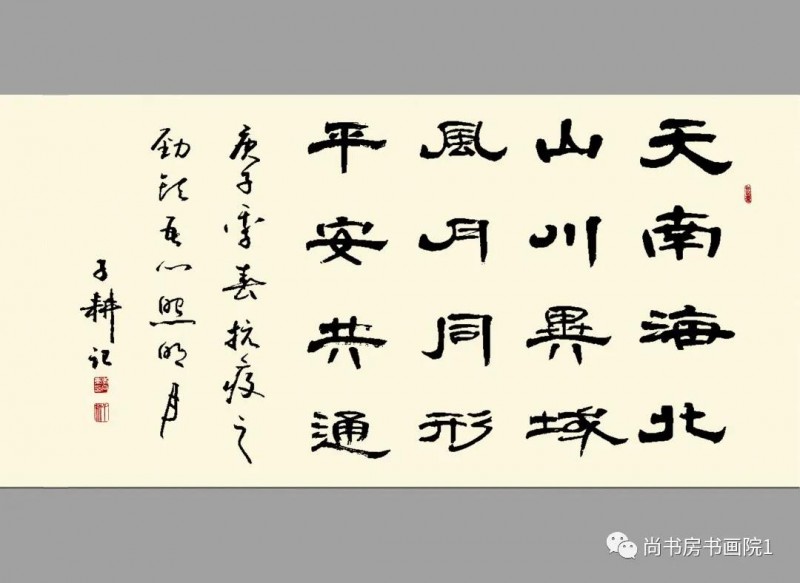 天南海北
山川異域
風月同形
平安共通
庚子季春抗疫之
勁
吾心照明月
子耕記
尚书房书画院1